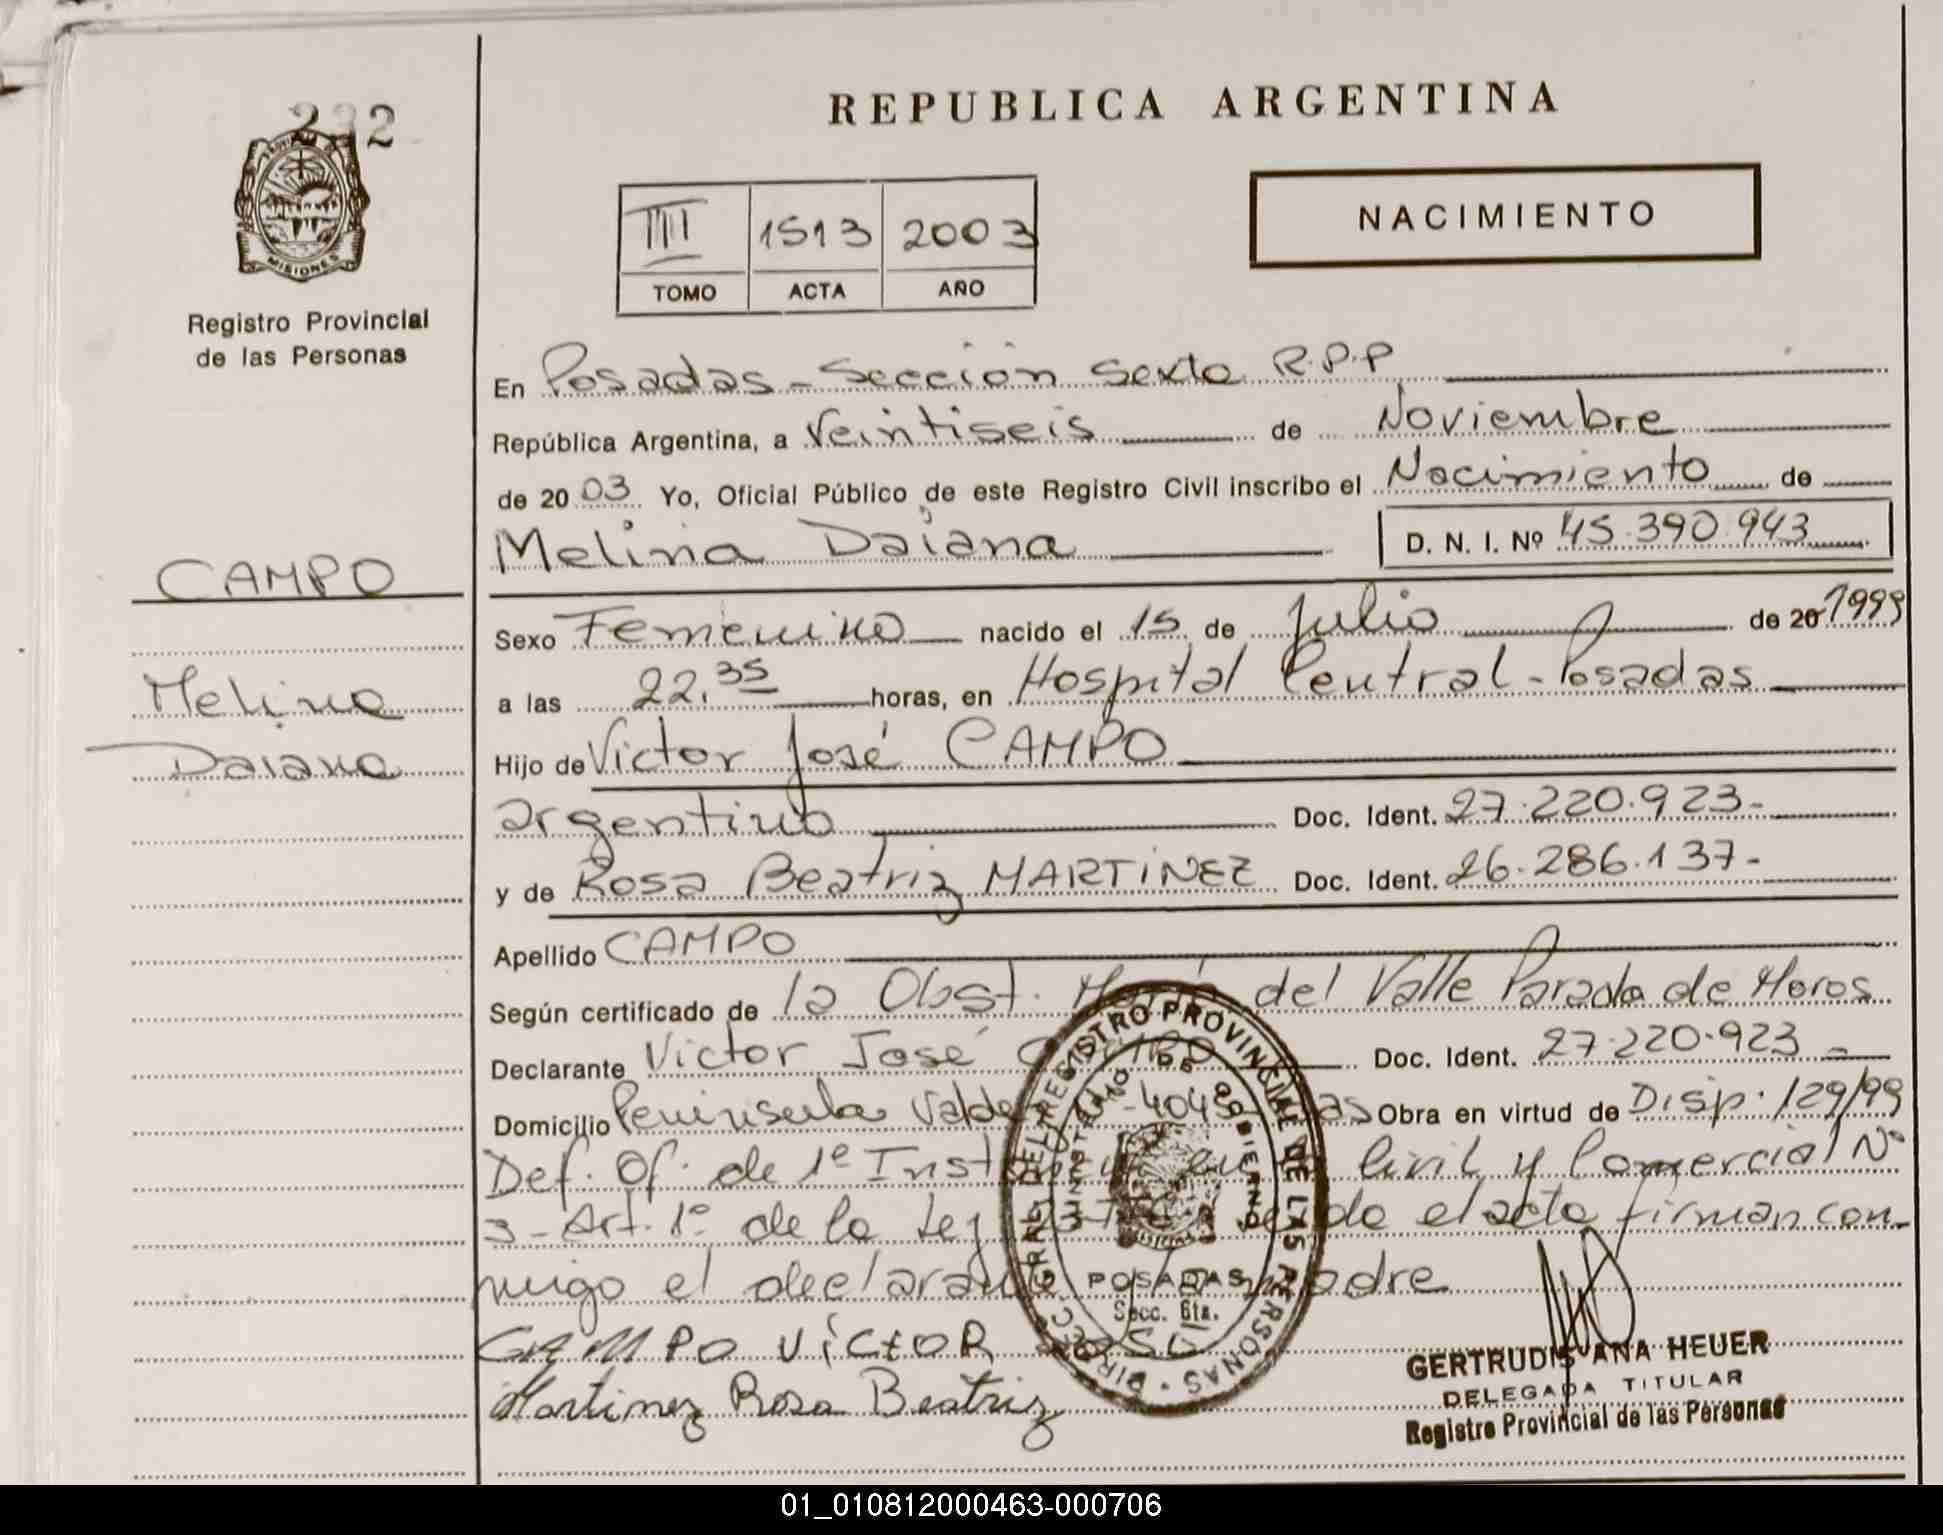 292
MISIONES
Registro Provincial
de las Personas
CAMPO
Melina
Daiana
REPUBLICA ARGENTINA
NACIMIENTO
III 1513 2003
TOMO ACTA AÑO
En Posadas - Sección Sexta R.P.P
República Argentina, a Veintiseis de Noviembre
de 2003 Yo, Oficial Público de este Registro Civil inscribo el Nacimiento de
Melina Daiana D. N. I. Nº 45.390.943
Sexo Femenino nacido el 15 de Julio de 20 1999
a las 22.35 horas, en Hospital Central - Posadas
Hijo de Victor José CAMPO
argentino Doc. Ident. 27.220.923-
y de Rosa Beatriz MARTINEZ Doc. Ident. 26.286.137-
Apellido CAMPO
Según certificado de la Obst. María del Valle Parada de Moros
Declarante Victor José CAMPO Doc. Ident. 27.220.923
Domicilio Peninsula 4045 Obra en virtud de Disp. 129/99
Def. Of. de 1º Inst Civil y Comercial Nº
3 - Art. 1º de la Ley el acta firman con-
migo el madre
CAMPO VICTOR JOSE
Martinez Rosa Beatriz
DIRECC. GRAL. DEL REGISTRO PROVINCIAL DE LAS PERSONAS
MINISTERIO DE GOBIERNO
POSADAS
Secc. 6ta.
GERTRUDIS ANA HEUER
DELEGADA TITULAR
Registro Provincial de las Personas
01_010812000463-000706